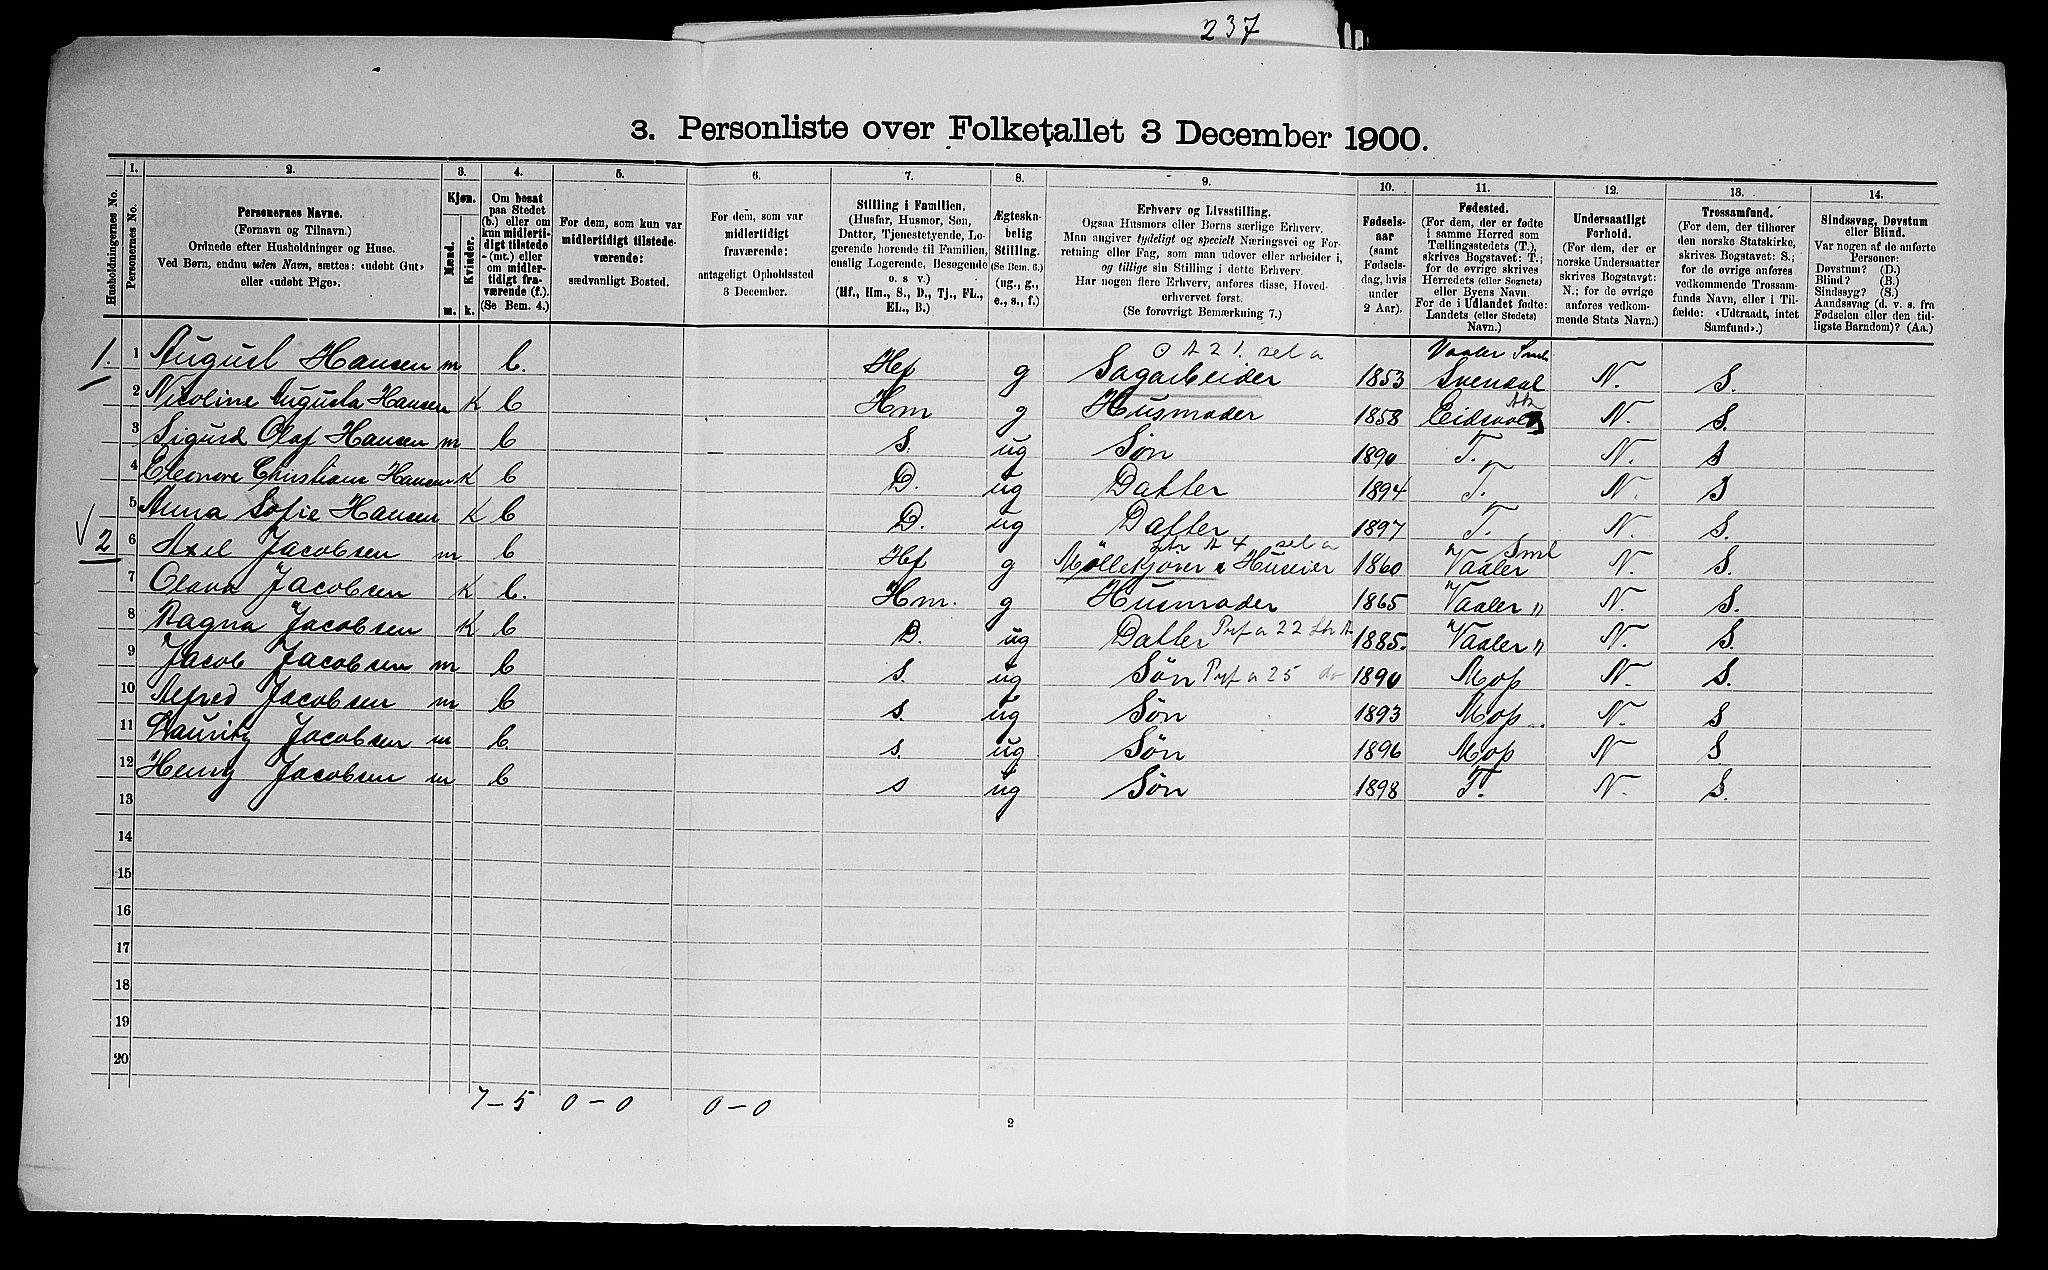 237
3. Personliste over Folketallet 3 December 1900.
Husholdningernes No.
1.
Personernes No.
2.
Personernes Navne.
(Fornavn og Tilnavn.)
Ordnede efter Husholdninger og Huse.
Ved Børn, endnu uden Navn, sættes: «udøbt Gut»
eller «udøbt Pige».
3.
Kjøn.
Mænd.
Kvinder.
m. k.
4.
Om bosat
paa Stedet
(b.) eller om
kun midlertidigt tilstede
(mt.) eller
om midlertidigt fraværende (f.).
(Se Bem. 4.)
5.
For dem, som kun var
midlertidigt tilstedeværende:
sædvanligt Bosted.
6.
For dem, som var
midlertidigt
fraværende:
antageligt Opholdssted
3 December.
7.
Stilling i Familien.
(Husfar, Husmor, Søn,
Datter, Tjenestetyende, Logerende hørende til Familien,
enslig Logerende, Besøgende
o. s. v.)
(Hf., Hm., S., D., Tj., FL.,
EL., B.)
8.
Ægteskabelig
Stilling.
(Se Bem. 6.)
(ug., g.,
e., s., f.)
9.
Erhverv og Livsstilling.
Ogsaa Husmors eller Børns særlige Erhverv.
Man angiver tydeligt og specielt Næringsvei og Forretning eller Fag, som man udøver eller arbeider i,
og tillige sin Stilling i dette Erhverv.
Har nogen flere Erhverv, anføres disse, Hovederhvervet først.
(Se forøvrigt Bemærkning 7.)
10.
Fødselsaar
(samt
Fødselsdag, hvis
under
2 Aar).
11.
Fødested.
(For dem, der er fødte
i samme Herred som
Tællingsstedets (T.),
skrives Bogstavet: T.;
for de øvrige skrives
Herredets (eller Sognets)
eller Byens Navn.
For de i Udlandet fødte:
Landets (eller Stedets)
Navn.)
12.
Undersaatligt
Forhold.
(For dem, der er
norske Undersaatter
skrives Bogstavet:
N.; for de øvrige
anføres vedkommende Stats Navn.)
13.
Trossamfund.
(For dem, der tilhører
den norske Statskirke,
skrives Bogstavet: S.;
for de øvrige anføres
vedkommende Trossamfunds Navn, eller i Tilfælde: «Udtraadt, intet
Samfund».)
14.
Sindssvag, Døvstum
eller Blind.
Var nogen af de anførte
Personer:
Døvstum? (D.)
Blind? (B.)
Sindssyg? (S.)
Aandssvag (d. v. s. fra
Fødselen eller den tidligste Barndom)? (Aa.)
1. 1 August Hansen m b. Hf g Sagarbeider 1853 Vaaler Sml. Svendal N. S.
2 Nicoline Augusta Hansen K b Hm g Husmoder 1858 Eidsvold Ak N. S.
3 Sigurd Olaf Hansen m b S. ug Søn 1890 T. N. S
4 Eleonore Christiane Hansen K b D. ug Datter 1894 T. N. S
5 Anna Sofie Hansen K b D. ug Datter 1897 T. N. S.
2 6 Axel Jacobsen m b Hf g Møllekjører & Huseier 1860 Vaaler Sml N. S.
7 Olava Jacobsen K b. Hm. g Husmoder 1865 Vaaler " N. S.
8 Ragna Jacobsen K b D. ug Datter 1885. Vaaler " N. S.
9 Jacob Jacobsen m b s. ug Søn 1890 Mos N S.
10 Alfred Jacobsen m b s. ug Søn 1893 Mos N. S
11 Lauritz Jacobsen m b. s. ug Søn 1896 Mos N S.
12 Henry Jacobsen m b s ug Søn 1898 T. N. S.
13
14
15
16
17
18
19
20
7–5 0–0 0–0
2